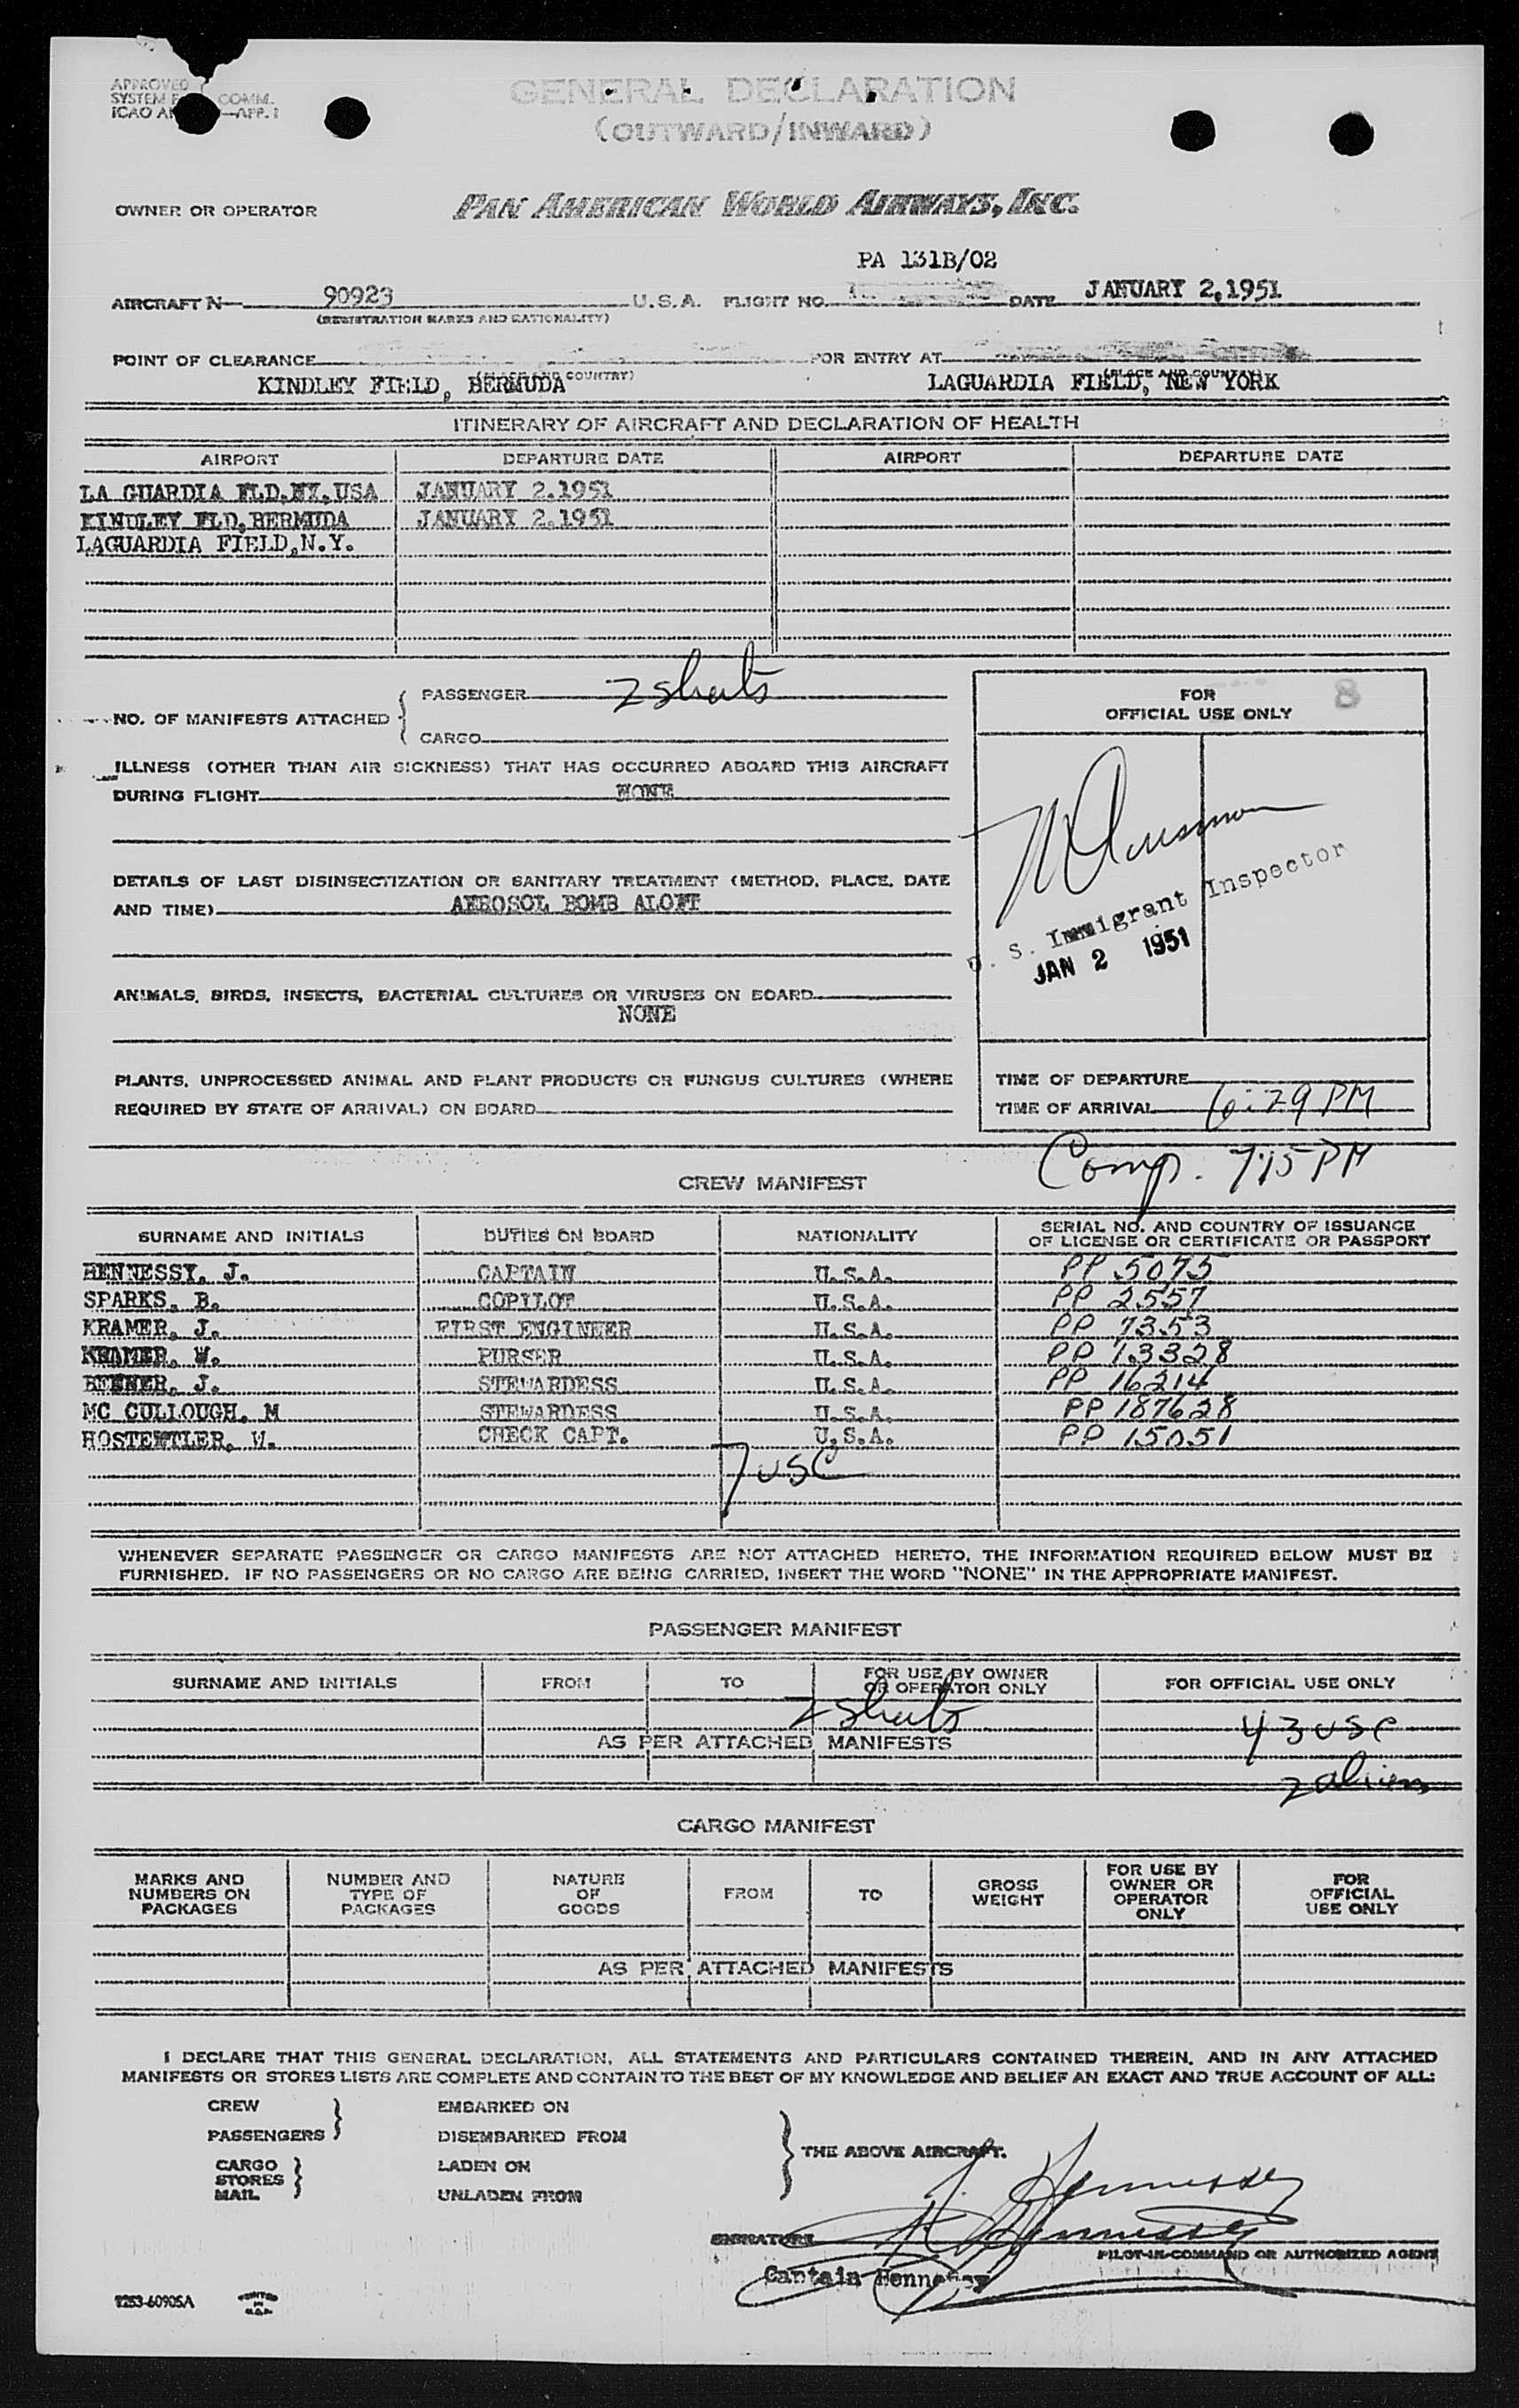 APPROVED
SYSTEM COMM.
ICAO —APP. 1
GENERAL DECLARATION
(OUTWARD/INWARD)
OWNER OR OPERATOR PAN AMERICAN WORLD AIRWAYS, INC.
PA 131B/02
AIRCRAFT N— 90923 U.S.A. FLIGHT NO. DATE JANUARY 2,1951
(REGISTRATION MARKS AND NATIONALITY)
POINT OF CLEARANCE FOR ENTRY AT
(PLACE AND COUNTRY) (PLACE AND COUNTRY)
KINDLEY FIELD, BERMUDA LAGUARDIA FIELD, NEW YORK
ITINERARY OF AIRCRAFT AND DECLARATION OF HEALTH
AIRPORT DEPARTURE DATE AIRPORT DEPARTURE DATE
LA GUARDIA FLD,NY,USA JANUARY 2,1951
KINDLEY FLD,BERMUDA JANUARY 2,1951
LAGUARDIA FIELD,N.Y.
NO. OF MANIFESTS ATTACHED { PASSENGER 2 sheets
CARGO
FOR
OFFICIAL USE ONLY 8
ILLNESS (OTHER THAN AIR SICKNESS) THAT HAS OCCURRED ABOARD THIS AIRCRAFT
DURING FLIGHT NONE
DETAILS OF LAST DISINSECTIZATION OR SANITARY TREATMENT (METHOD, PLACE, DATE
AND TIME) AEROSOL BOMB ALOFT
U. S. Immigrant Inspector
JAN 2 1951
ANIMALS, BIRDS, INSECTS, BACTERIAL CULTURES OR VIRUSES ON BOARD
NONE
PLANTS, UNPROCESSED ANIMAL AND PLANT PRODUCTS OR FUNGUS CULTURES (WHERE
REQUIRED BY STATE OF ARRIVAL) ON BOARD
TIME OF DEPARTURE
TIME OF ARRIVAL 6:29 PM
Comp. 7:15 PM
CREW MANIFEST
SURNAME AND INITIALS DUTIES ON BOARD NATIONALITY SERIAL NO. AND COUNTRY OF ISSUANCE
OF LICENSE OR CERTIFICATE OR PASSPORT
HENNESSY, J. CAPTAIN U.S.A. PP 5075
SPARKS, B. COPILOT U.S.A. PP 2557
KRAMER, J. FIRST ENGINEER U.S.A. PP 7353
KRAMER, W. PURSER U.S.A. PP 13328
J. STEWARDESS U.S.A. PP 16214
MC CULLOUGH, M STEWARDESS U.S.A. PP 187628
HOSTEWTLER, W. CHECK CAPT. U.S.A. PP 15051
7 USC
WHENEVER SEPARATE PASSENGER OR CARGO MANIFESTS ARE NOT ATTACHED HERETO, THE INFORMATION REQUIRED BELOW MUST BE
FURNISHED. IF NO PASSENGERS OR NO CARGO ARE BEING CARRIED, INSERT THE WORD "NONE" IN THE APPROPRIATE MANIFEST.
PASSENGER MANIFEST
SURNAME AND INITIALS FROM TO FOR USE BY OWNER
OR OPERATOR ONLY FOR OFFICIAL USE ONLY
2 sheets 43 USC
AS PER ATTACHED MANIFESTS
2 aliens
CARGO MANIFEST
MARKS AND
NUMBERS ON
PACKAGES NUMBER AND
TYPE OF
PACKAGES NATURE
OF
GOODS FROM TO GROSS
WEIGHT FOR USE BY
OWNER OR
OPERATOR
ONLY FOR
OFFICIAL
USE ONLY
AS PER ATTACHED MANIFESTS
I DECLARE THAT THIS GENERAL DECLARATION, ALL STATEMENTS AND PARTICULARS CONTAINED THEREIN, AND IN ANY ATTACHED
MANIFESTS OR STORES LISTS ARE COMPLETE AND CONTAIN TO THE BEST OF MY KNOWLEDGE AND BELIEF AN EXACT AND TRUE ACCOUNT OF ALL:
CREW EMBARKED ON
PASSENGERS } DISEMBARKED FROM
} THE ABOVE AIRCRAFT.
CARGO LADEN ON
STORES }
MAIL UNLADEN FROM
J. Hennessy
SIGNATURE Hennessy
PILOT-IN-COMMAND OR AUTHORIZED AGENT
Captain Hennessy
1253-6090SA PRINTED
IN
U.S.A.